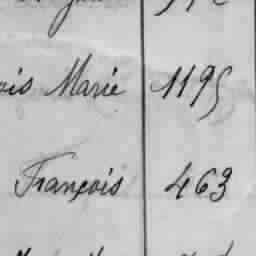 ois Marie 1195
François 463